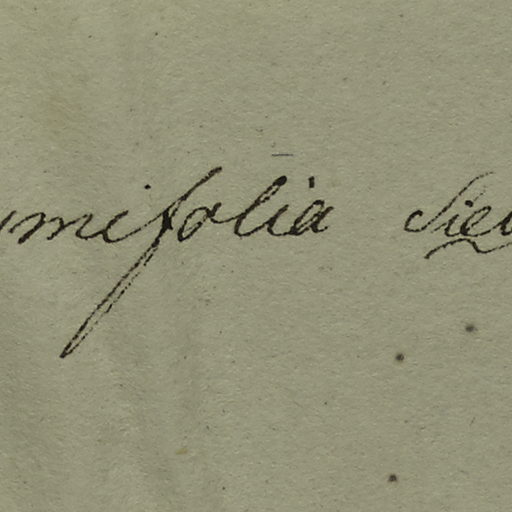 umifolia Siev